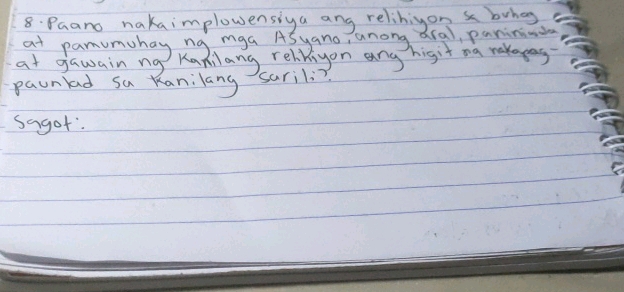 8. Paano nakaimpluwensiya ang relihiyon sa buhay
at pamumuhay ng mga Asyano, anong aral, paniniwala
at gawain ng kanilang relihiyon ang higit na nakapag-
paunlad sa kanilang sarili?
Sagot: